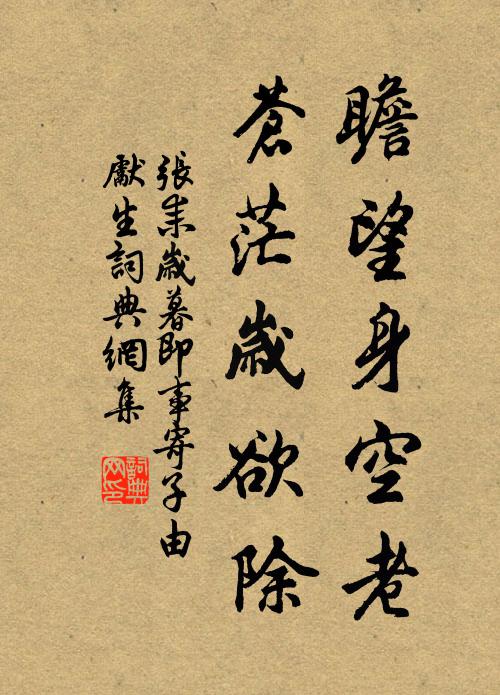 瞻望身空老
蒼茫歲欲除
張耒歲暮即事寄子由
獻生詞典網集
詞典網印